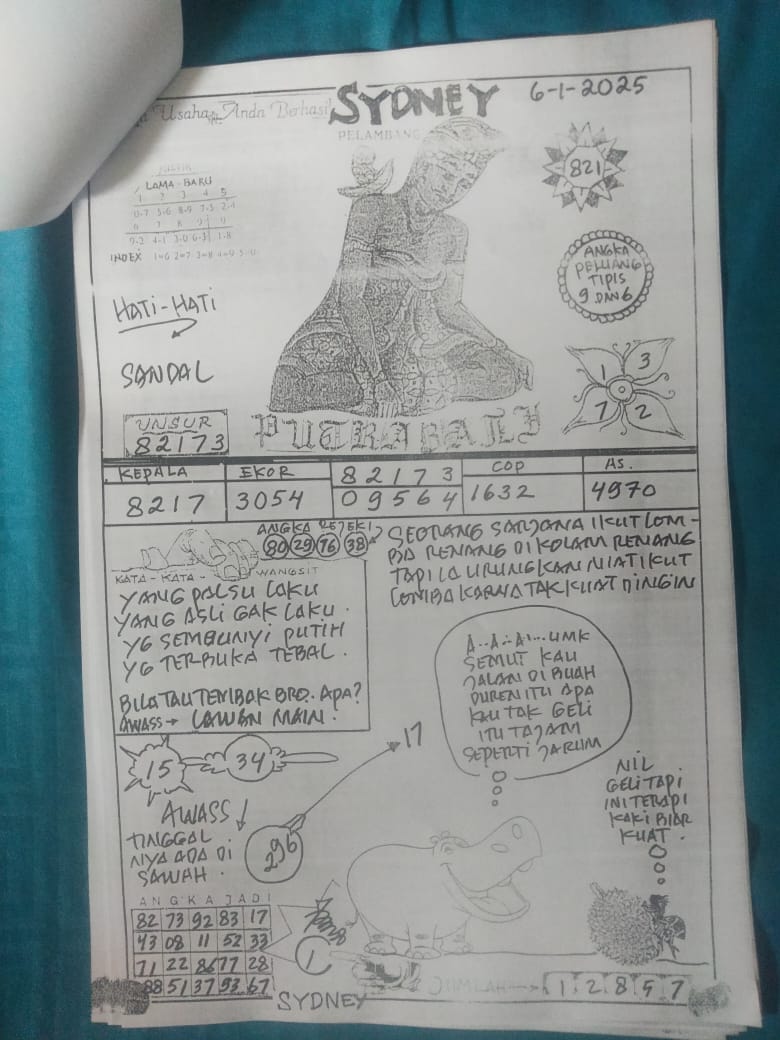 Usaha Anda Berhasil
SYDNEY
6-1-2025
PELAMBANG
LAMA - BARU
1 2 3 4 5
0-7 5-6 8-9 7-5 2-4
9-2 4-1 3-0 6-3 1-8
INDEX 1=6 2=7 3=8 4=9 5=0
821
ANGKA
PELUANG
TIPIS
9 DAN 6
HATI-HATI
SANDAL
1 3
7 2
UNSUR
82173
PUTRA BALI
KEPALA EKOR 82173 COP AS.
8217 3054 09564 1632 4970
ANGKA REJEKI
80 29 76 38
KATA - KATA - WANGSIT
YANG PALSU LAKU
YANG ASLI GAK LAKU.
YG SEMBUNYI PUTIH
YG TERBUKA TEBAL.
BILA TAU TEMBAK BRO. APA?
AWASS → LAWAN MAIN.
SEORANG SARJANA IKUT LOM-
BA RENANG DI KOLAM RENANG
TAPI IA URUNGKAN NIAT IKUT
LOMBA KARNA TAK KUAT DINGIN
A..A..A'...UMK
SEMUT KAU
JALAN DI BUAH
DUREN ITU APA
KAU TAK GELI
ITU TAJAM
SEPERTI JARUM
15 34
17
AWASS
TINGGAL
NYA ADA DI
SAWAH.
296
NIL
GELI TAPI
INI TERAPI
KAKI BIAR
KUAT.
ANGKA JADI
82 73 92 83 17
43 08 11 52 33
71 22 86 77 28
88 51 37 93 67
1
JUMLAH → 1 2 8 9 7
SYDNEY